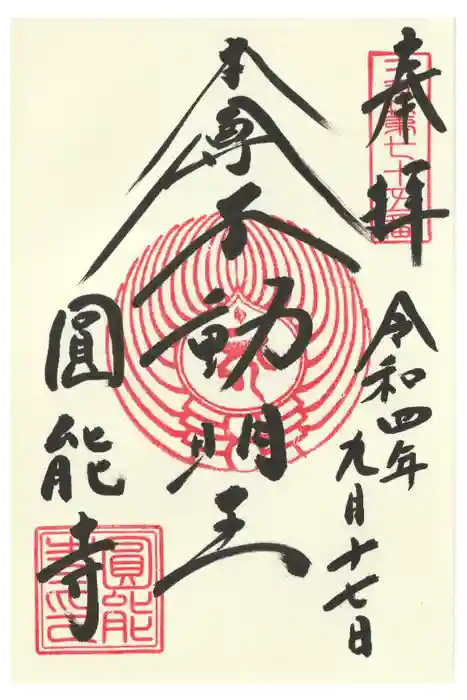 奉拝
令和四年
九月十七日
本尊不動明王
圓能寺
圓能
寺印